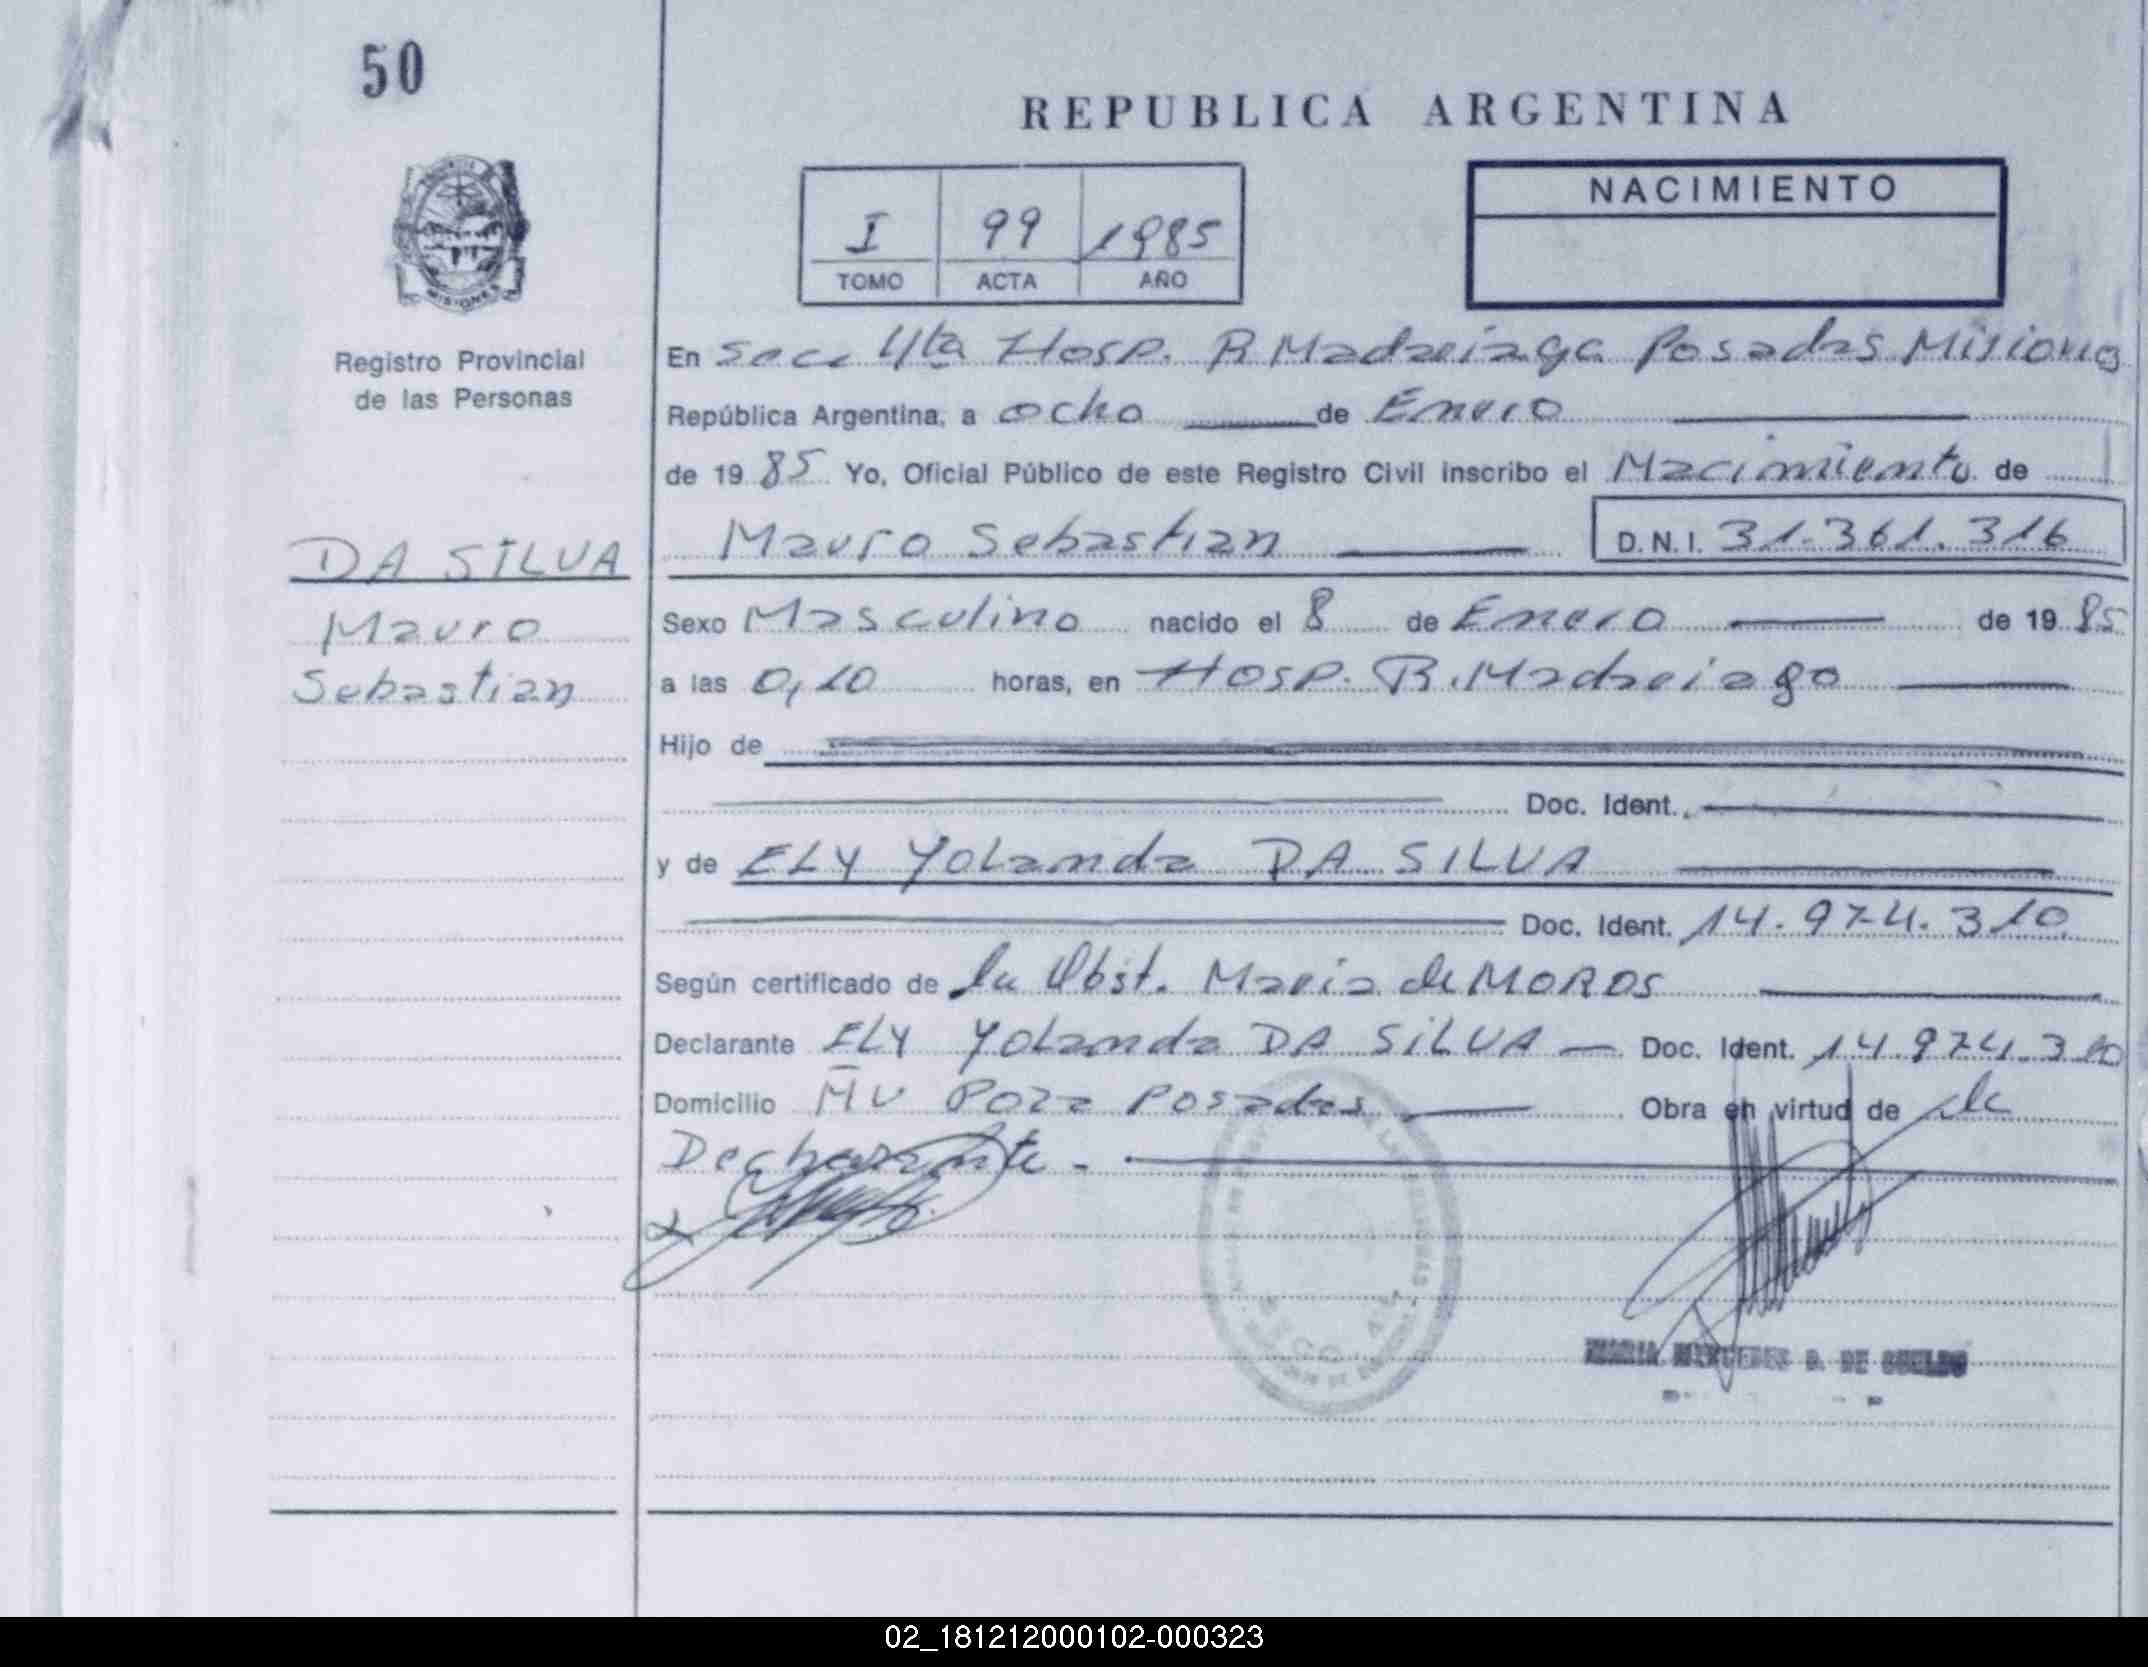 50
REPUBLICA ARGENTINA
I 99 1985
TOMO ACTA AÑO
NACIMIENTO
MISIONES
Registro Provincial
de las Personas
En Secc 4ta Hosp. R Madariaga Posadas Misiones
República Argentina, a ocho de Enero
de 19 85 Yo, Oficial Público de este Registro Civil inscribo el Nacimiento de
DA SILVA
Mauro Sebastian D.N.I. 31.361.316
Mauro
Sebastian
Sexo Masculino nacido el 8 de Enero de 19 85
a las 0,10 horas, en Hosp. R. Madariaga
Hijo de
Doc. Ident.
y de ELY Yolanda DA SILVA
Doc. Ident. 14.974.310
Según certificado de la Obst. Maria de MOROS
Declarante ELY Yolanda DA SILVA Doc. Ident. 14.974.310
Domicilio Posadas Obra en virtud de
Declarante
MARIA MERCEDES D. DE
02_181212000102-000323